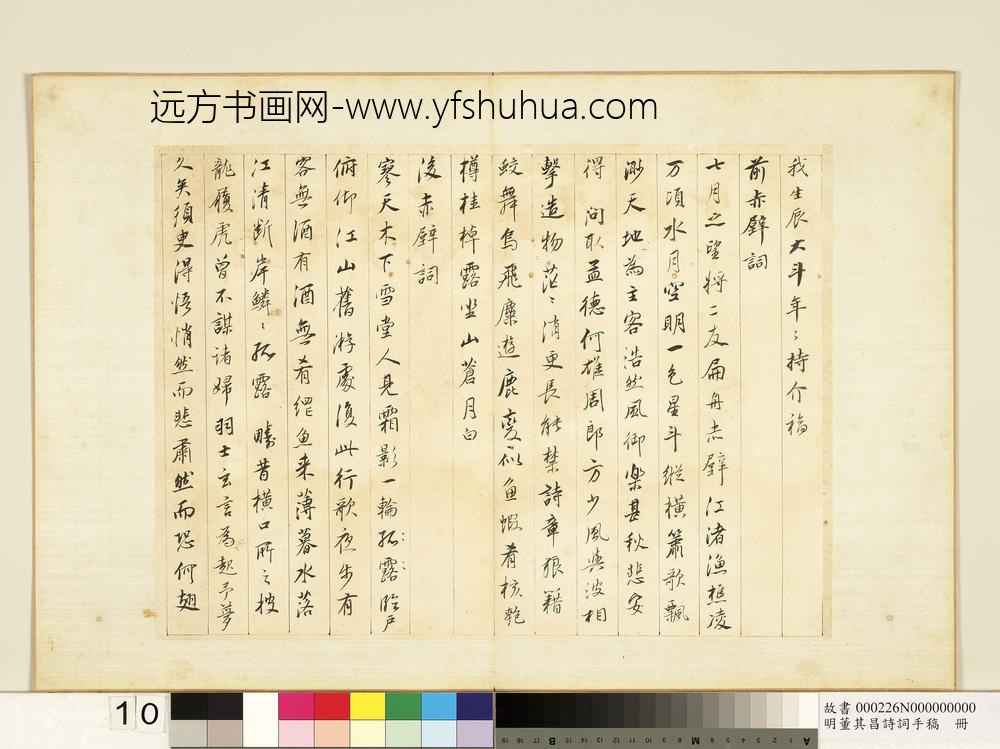 远方书画网-www.yfshuhua.com
我生辰大斗年〻持介福
前赤壁詞
七月之望將二友扁舟赤壁 江渚漁樵凌
万頃水月空明一色星斗縱橫簫歌飄
渺天地為主客浩然風御樂甚秋悲安
得 问取孟德何雄周郎方少風與波相
擊造物茫〻消更長能禁詩章狼籍
蛟舞烏飛麋遊鹿友似魚蝦肴核匏
樽桂棹露坐山蒼月白
後赤壁詞
寥天木下雪堂人見霜影一輪孤露臨戶
俯仰江山舊游處復此行歌夜步有
客無酒有酒無肴網魚来薄暮水落
江清断岸鱗〻孤露 疇昔橫口所之披
龍履虎曾不謀诸婦羽士玄言為起予夢
久矣須臾得悟悄然而悲肅然而恐何翅
10
故書 000226N000000000
明董其昌詩詞手稿 冊
19 18 17 16 15 14 13 12 11 10 9 8 7 6 5 4 3 2 1
B
M
A